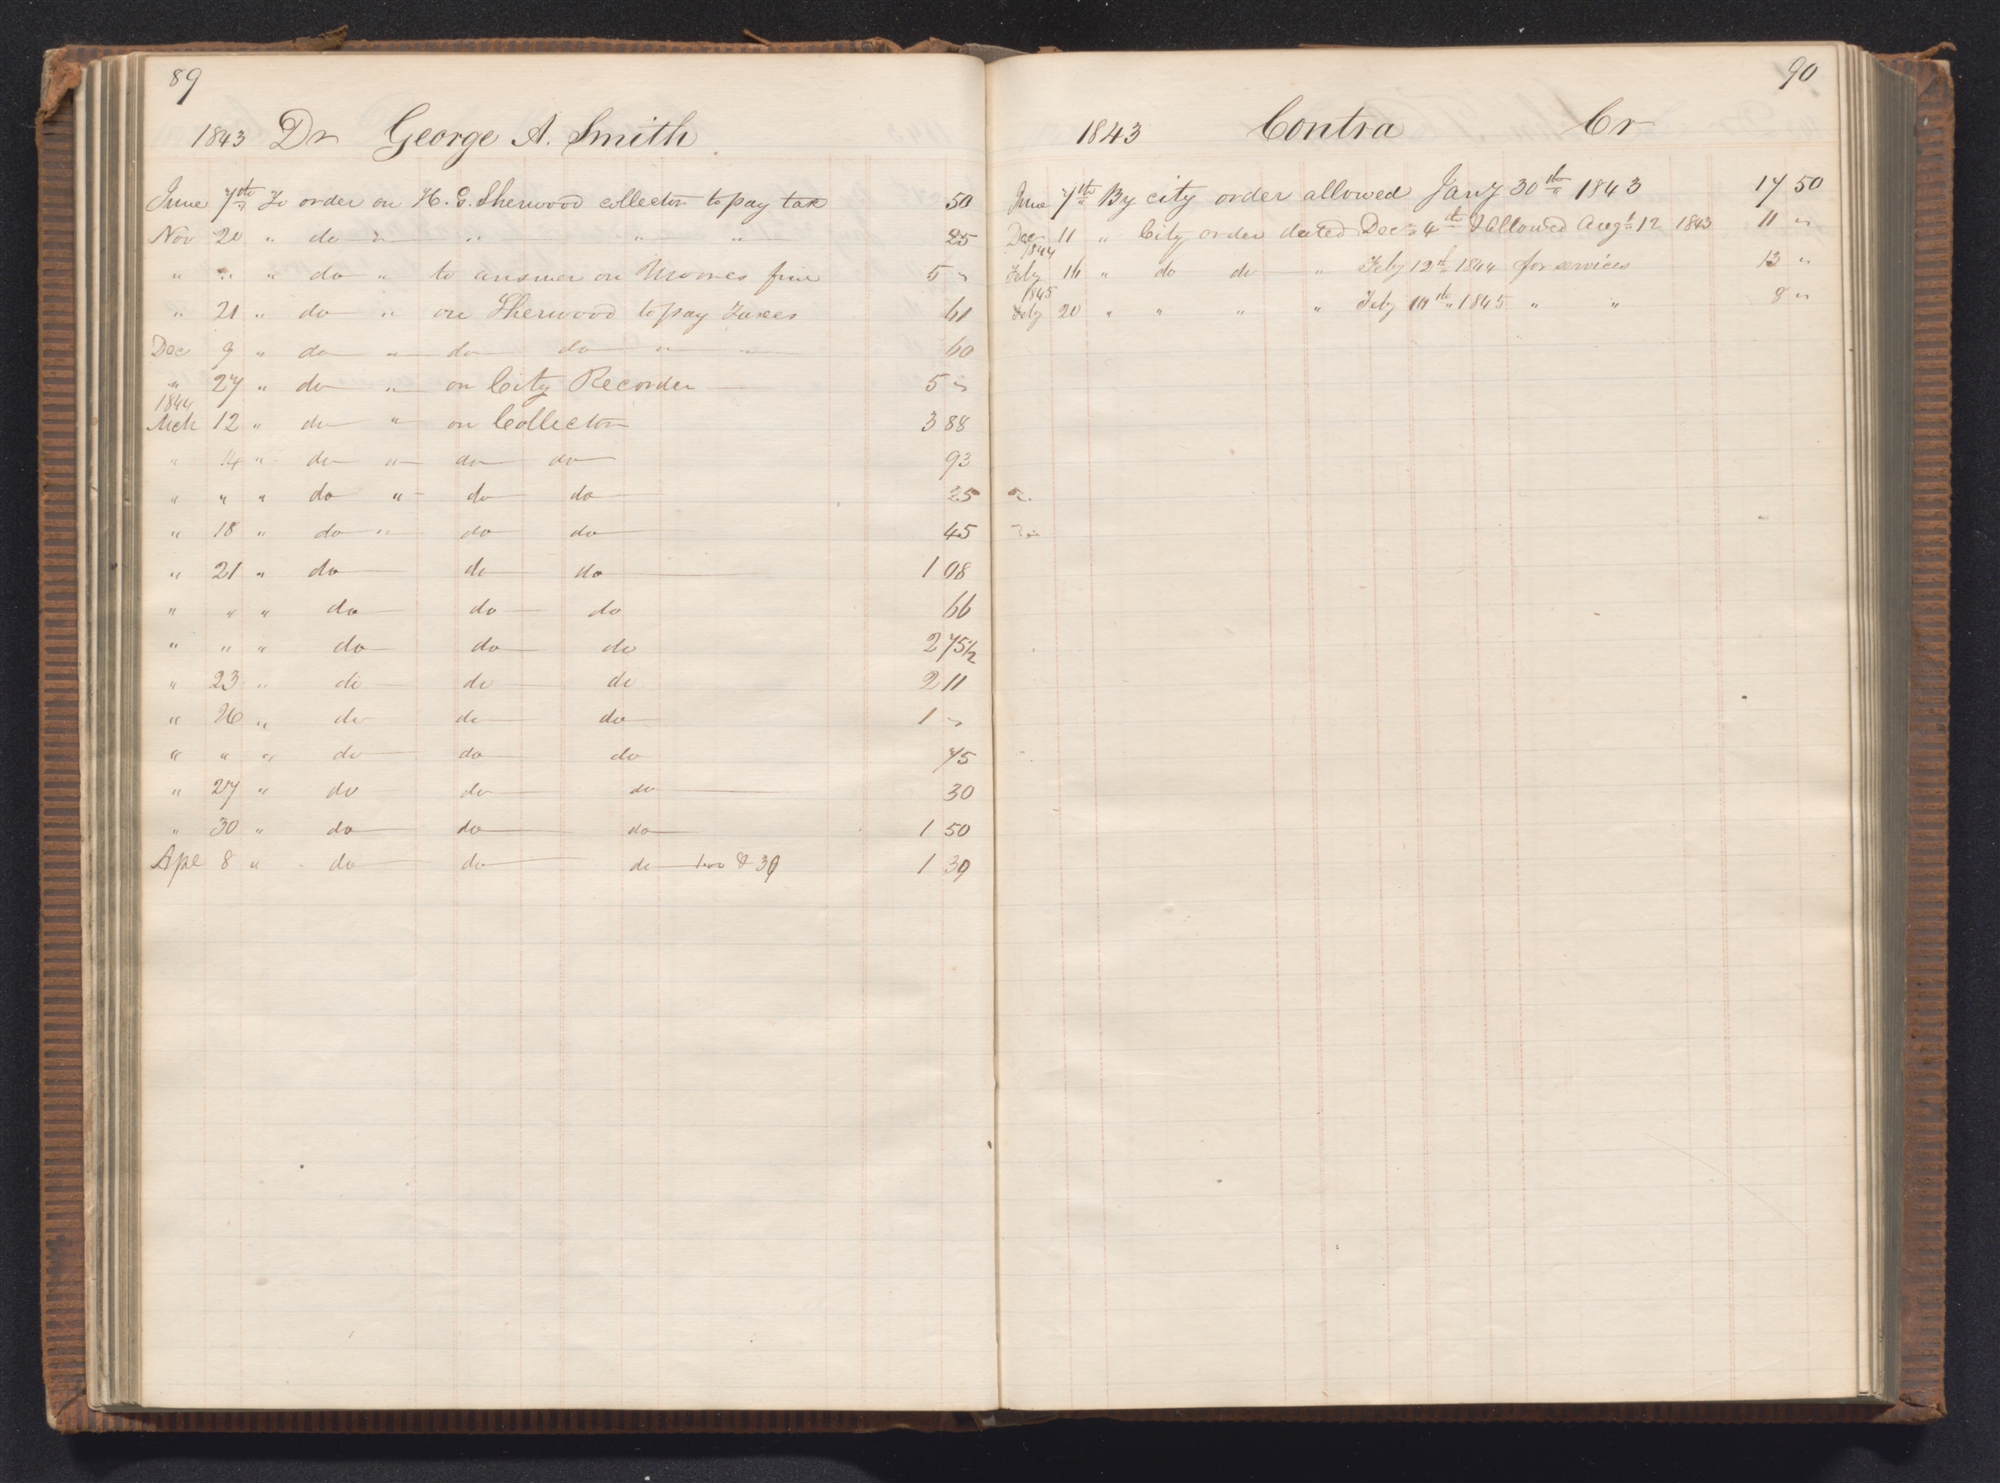 89
1843 Dr George A. Smith
June 7th To order on H. G. Sherwood collector to pay tax 50
Nov 20 " do " " " " 25
" " " do " to answer on Moores fine 5 "
" 21 " do " on Sherwood to pay Taxes 61
Dec 9 " do " do do " " 60
" 27 " do " on City Recorder 5 "
1844
Mch 12 " do " on Collector 3 88
" 14 " do " do do 93
" " " do " do do 25
" 18 " do " do do 45
" 21 " do do do 1 08
" " " do do do 66
" " " do do do 2 75 1/2
" 23 " do do do 2 11
" 26 " do do do 1 "
" " " do do do 75
" 27 " do do do 30
" 30 " do do do 1 50
Ape 8 " do do do & 39 1 39
90
1843 Contra Cr
June 7th By city order allowed Jany 30th 1843 17 50
Dec 11 " City order dated Dec 4th allowed Augt 12 1843 11 "
1844
Feby 16 " do do " Feby 12th 1844 for services 13 "
1845
Feby 20 " " " " Feby 10th 1845 " " 8 "